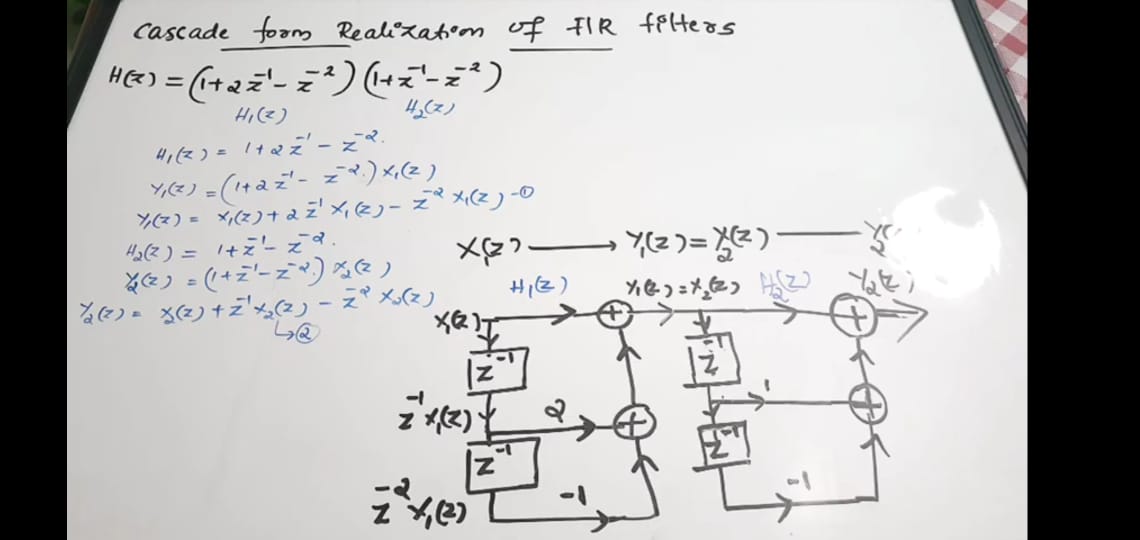 Cascade form Realization of FIR filters
H(z) = (1+2z⁻¹ - z⁻²) (1+z⁻¹ - z⁻²)
H₁(z) H₂(z)
H₁(z) = 1+2z⁻¹ - z⁻².
Y₁(z) = (1+2z⁻¹ - z⁻².) X₁(z)
Y₁(z) = X₁(z) + 2z⁻¹ X₁(z) - z⁻² X₁(z) -①
H₂(z) = 1+z⁻¹ - z⁻².
Y₂(z) = (1+z⁻¹ - z⁻².) X₂(z)
Y₂(z) = X₂(z) + z⁻¹ X₂(z) - z⁻² X₂(z)
↳②
X₁(z) → Y₁(z) = X₂(z) — Y₂(
H₁(z) Y₁(z) = X₂(z) H₂(z) Y₂(z)
X₁(z) + +
z⁻¹ z⁻¹
z⁻¹ X₁(z) 2 + 1 +
z⁻¹ z⁻¹
z⁻² X₁(z) -1 -1